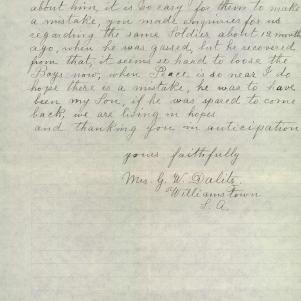 about him, it is so easy for them to make
a mistake, you made Inquiries for us
regarding the same Soldier about 12 month
ago, when he was gassed, but he recovered
from that, it seems so hard to loose the
Boys now, when Peace is so near I do
hope there is a mistake, he was to have
been my Son, if he was spared to come
back, we are living in hopes
and thanking you in anticipation
yours faithfully
Mrs. G. W. Dalitz.
Williamstown
S. A.